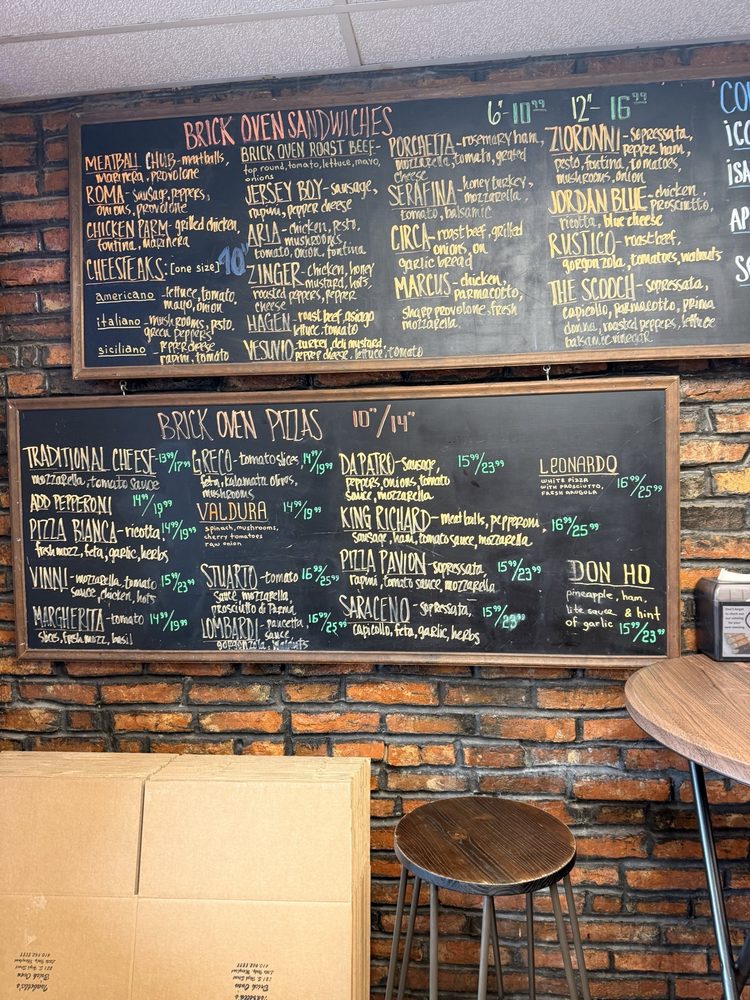 BRICK OVEN SANDWICHES
6"-10.99 12"-16.99
MEATBALL CHUB-meatballs,
marinera, provolone
ROMA-sausage, peppers,
onions, provolone
CHICKEN PARM-grilled chicken,
fontina, marinera
CHEESTEAKS:[one size] 10"
americano-lettuce, tomato,
mayo, onion
italiano-mushrooms, pesto,
green peppers
siciliano-pepper cheese
rapini, tomato
BRICK OVEN ROAST BEEF-
top round, tomato, lettuce, mayo,
onions
JERSEY BOY-sausage,
rapini, pepper cheese
ARIA-chicken, pesto,
mushrooms,
tomato, onion, fontina
ZINGER-chicken, honey
mustard, hots,
roasted peppers, pepper
cheese
HAGEN-roast beef, asiago
lettuce, tomato
VESUVIO-turkey, deli mustard,
pepper cheese, lettuce, tomato
PORCHETTA-rosemary ham,
mozzarella, tomato, grated
cheese
SERAFINA-honey turkey,
mozzarella,
tomato, balsamic
CIRCA-roast beef, grilled
onions, on
garlic bread
MARCUS-chicken,
parmacotto,
sharp provolone, fresh
mozzarella
ZIORONNI-sopressata,
pepper ham,
pesto, fontina, tomatoes,
mushrooms, onion
JORDAN BLUE-chicken,
prosciutto,
ricotta, blue cheese
RUSTICO-roast beef,
gorgonzola, tomatoes, walnuts
THE SCOOCH-sopressata,
capicollo, parmacotto, prima
donna, roasted peppers, lettuce
balsamic vinegar
BRICK OVEN PIZZAS 10"/14"
TRADITIONAL CHEESE-13.99/17.99
mozzarella, tomato sauce
ADD PEPPERONI 14.99/19.99
PIZZA BIANCA-ricotta, 14.99/19.99
fresh mozz, feta, garlic, herbs
VINNI-mozzarella, tomato 15.99/23.99
sauce, chicken, hots
MARGHERITA-tomato 14.99/19.99
slices, fresh mozz, basil
GRECO-tomato slices, 14.99/19.99
feta, kalamata olives,
mushrooms
VALDURA 14.99/19.99
spinach, mushrooms,
cherry tomatoes
raw onion
STUARTO-tomato 16.99/25.99
sauce, mozzarella,
prosciutto di Parma
LOMBARDI-pancetta, 16.99/25.99
sauce,
gorgonzola, walnuts
DA PATRO-sausage, 15.99/23.99
peppers, onions, tomato
sauce, mozzarella
KING RICHARD-meatballs, pepperoni, 16.99/25.99
sausage, ham, tomato sauce, mozzarella
PIZZA PAVION-sopressata, 15.99/23.99
rapini, tomato sauce, mozzarella
SARACENO-sopressata, 15.99/23.99
capicollo, feta, garlic, herbs
LEONARDO
WHITE PIZZA
WITH PROSCIUTTO, 16.99/25.99
FRESH ARUGOLA
DON HO
pineapple, ham,
lite sauce & hint
of garlic 15.99/23.99
Brick Oven